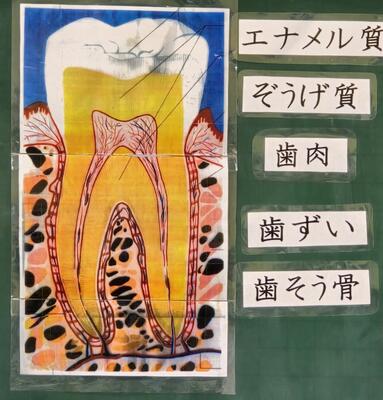 エナメル質
ぞうげ質
歯肉
歯ずい
歯そう骨